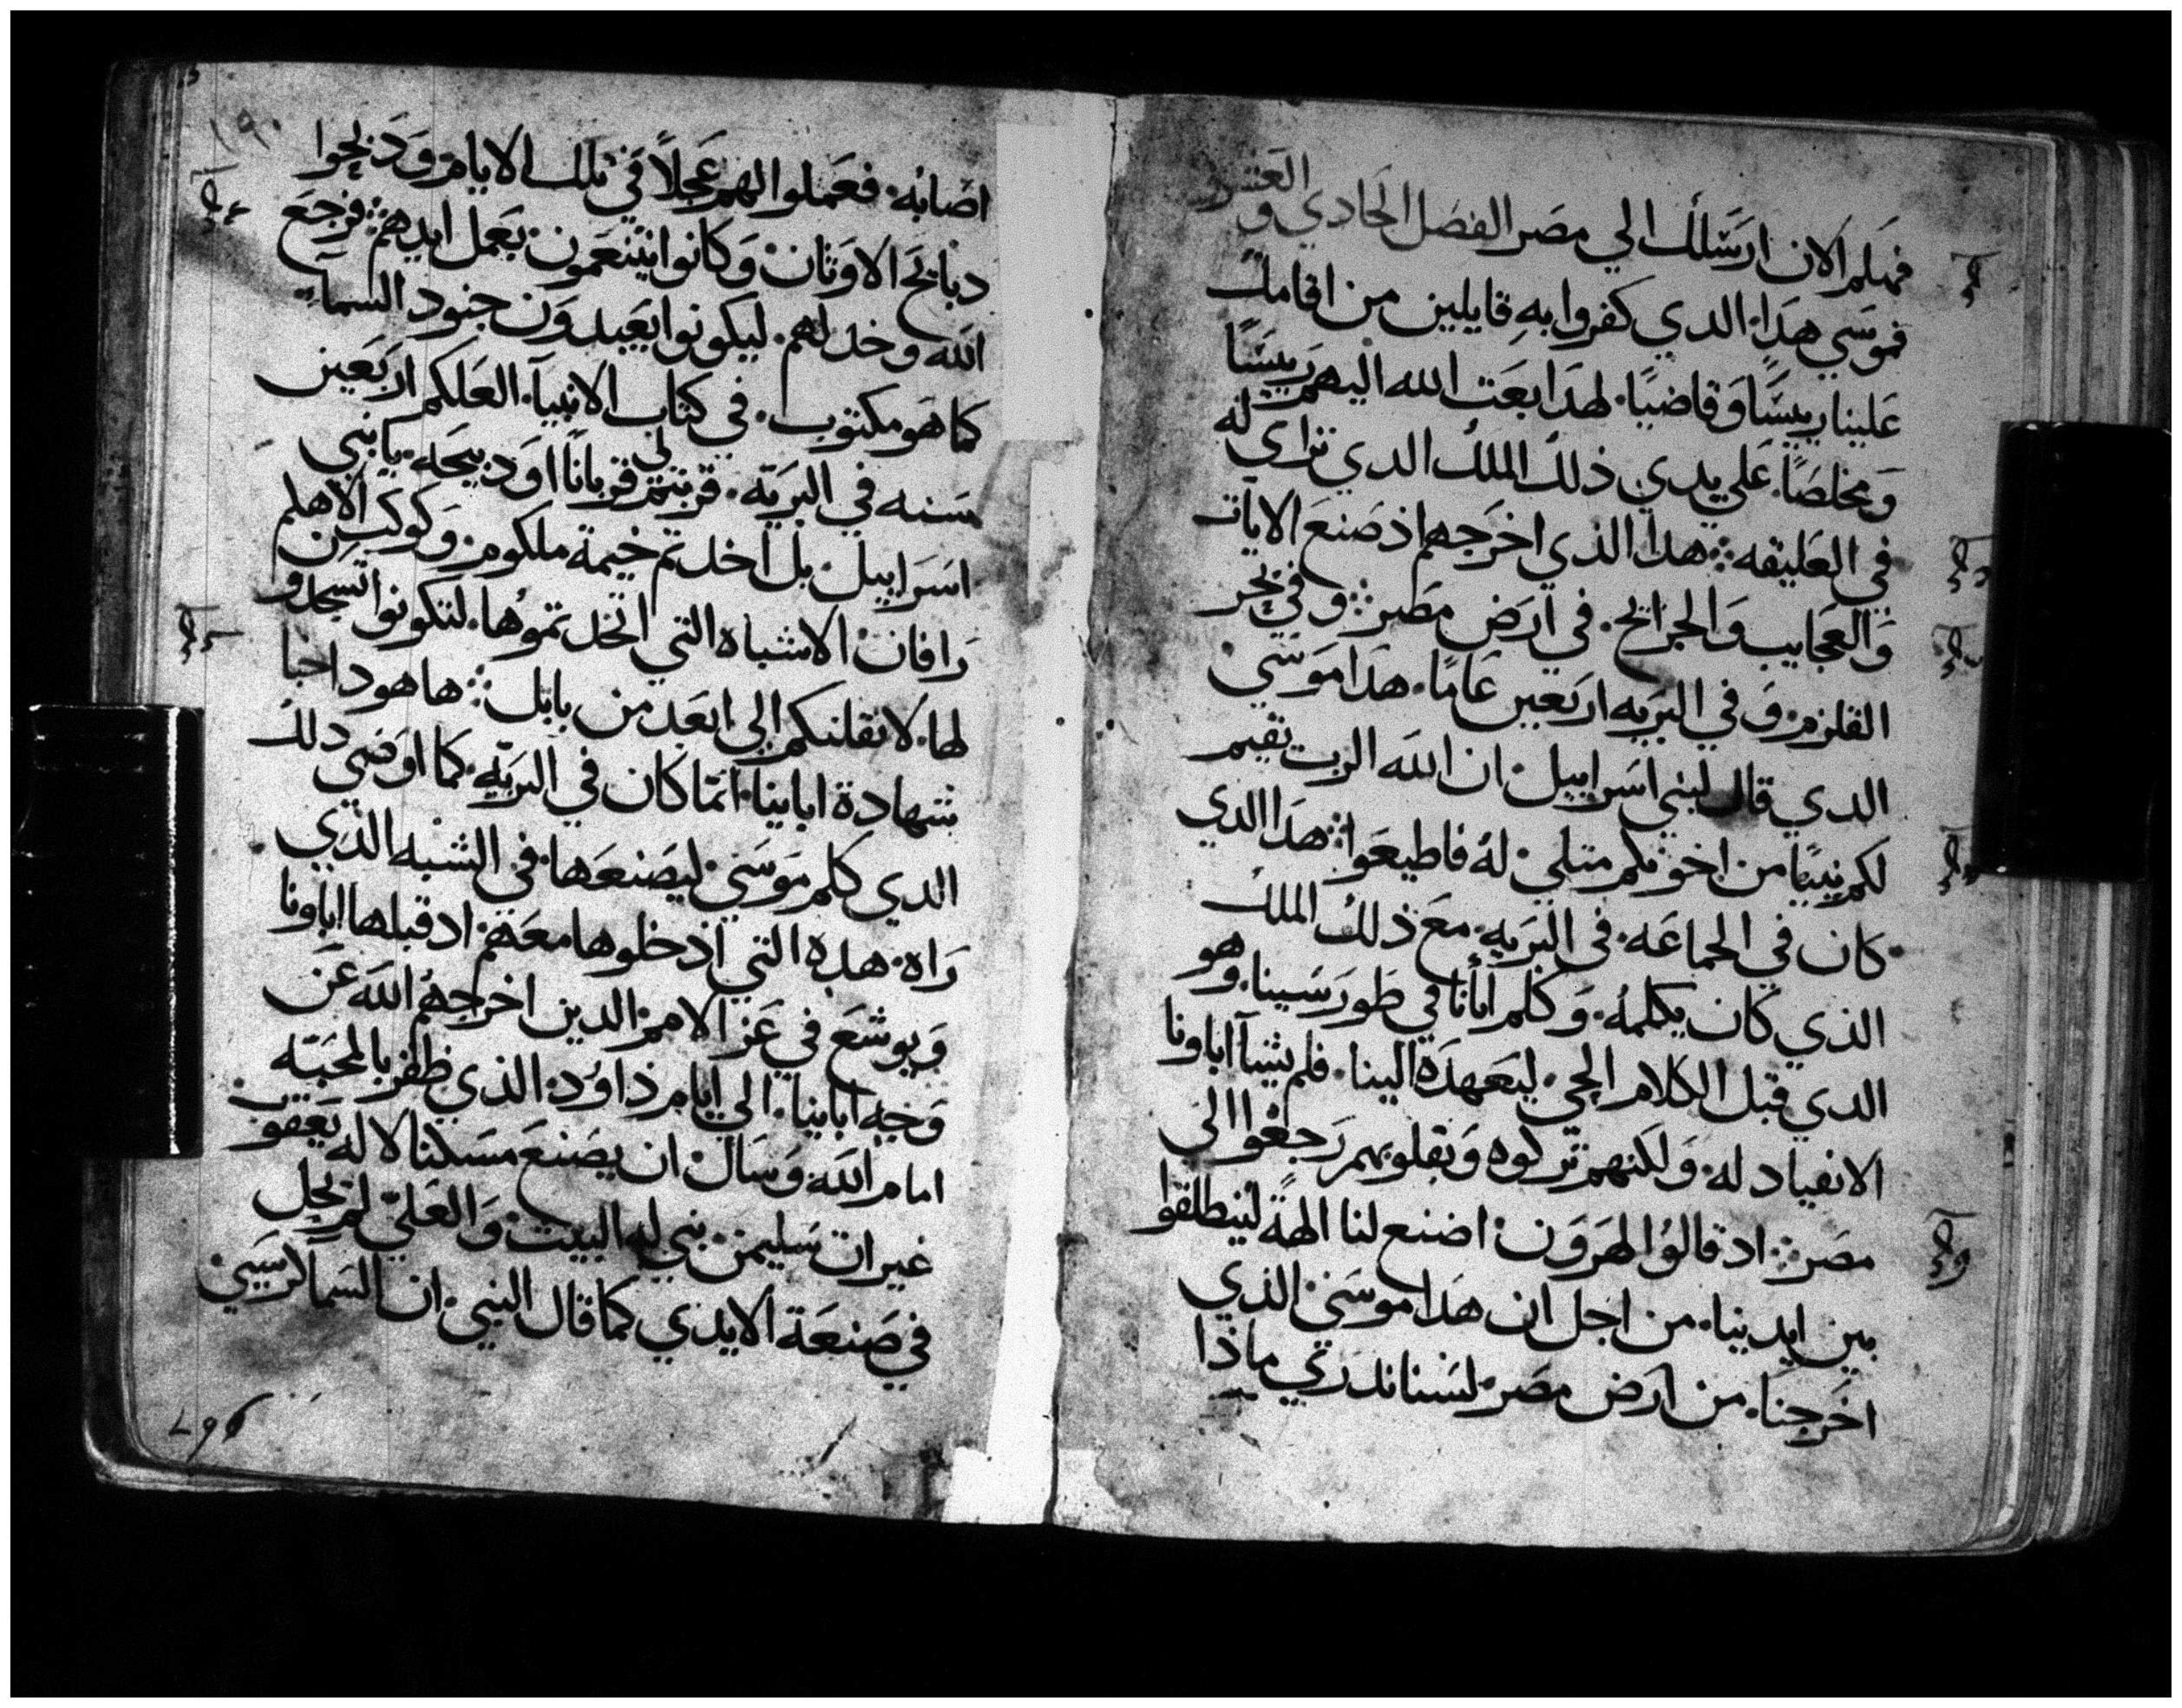 فهلم الان ارسلك الي مصر الفصل الحادي والعشر
فموسي هدا الدي كفروا به قايلين من اقامك
علينا رييسًا وقاضيًا لهدا بعت الله اليهم رييسًا
ومخلصًا علي يدي ذلك الملك الدي تراى له
في العليقه هدا الذي اخرجهم اذ صنع الايات
والعجايب والجرايح في ارض مصر وفي بحر
القلزم وفي البريه اربعين عامًا هدا موسي
الدي قال لبني اسراييل ان الله الرب يقيم
لكم نبيًا من اخوتكم متلي له فاطيعوا هدا الدي
كان في الجماعه في البريه مع ذلك الملك
الذي كان يكلمه وكلم ابأنا في طور سينا وهو
الدي قبل الكلام الحي ليعهده الينا فلم يشيآ اباونا
الانقياد له ولكنهم تركوه وبقلوبهم رجعوا الى
مصر اد قالوا لهرون اصنع لنا الهةً لينطلقوا
بين ايدينا من اجل ان هدا موسى الذي
اخرجنا من ارض مصر لسنا ندري ماذا
١٩٠
اصابه فعملوا لهم عجلاً في تلك الايام ودبحوا
دبايح الاوتان وكانوا يتنعمون بعمل ايديهم فرجع
الله وخدلهم ليكونوا يعبدون جنود السمآ
كما هو مكتوب في كتاب الانبيآ العلكم اربعين
سنه في البريه قربتم لي قربانًا او دبيحه يا بني
اسراييل بل اخدتم خيمة ملكوم وكوكب الاهكم
رافان الاشباه التي اتخدتموها لتكونوا تسجدون
لها لانقلنكم الي ابعد من بابل ها هودا خبا
شهادة اباينا انما كان في البريه كما اوصي دلك
الدي كلم موسي ليصنعها في الشبه الذي
راه هده التي اذ خلوها معهم اد قبلها اباونا
ويوشع في عز الامم الدين اخرجهم الله عن
وجه اباينا الي ايام داوود الذي ظفر بالمحبه
امام الله وسال ان يصنع مسكنا لاله يعقوب
غير ان سليمن بني له البيت والعلي لم يحل
في صنعة الايدي كما قال النبي ان السما كرسيي